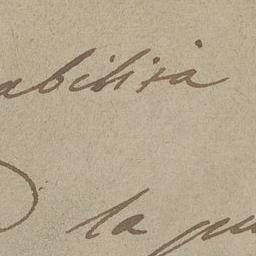 abilità
la pu